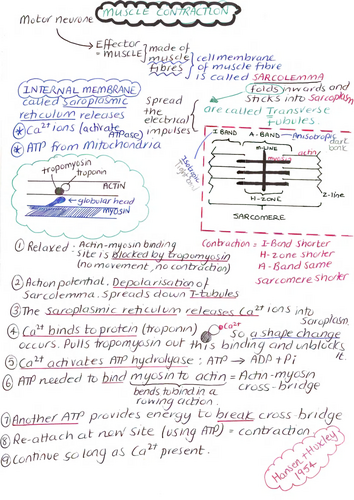 MUSCLE CONTRACTION
Motor neurone
Effector = muscle
made of muscle fibres
cell membrane
of muscle fibre
is called SARCOLEMMA
folds inwards and
sticks into Sarcoplasm
are called Transverse
Tubules.
INTERNAL MEMBRANE
called Saroplasmic
reticulum releases
* Ca²⁺ ions (activate ATPase)
* ATP from Mitochondria
Spread
the
electrical
impulses
tropomyosin
troponin
ACTIN
globular head
MYOSIN
I BAND
A-BAND
Anisotropic
dark band
M-LINE
actin
myosin
Isotropic
light band
Z-line
H-ZONE
SARCOMERE
① Relaxed. Actin-myosin binding
site is blocked by tropomyosin
(no movement, no contraction)
Contraction = I-Band shorter
H-zone shorter
A-Band same
sarcomere shorter
② Action potential. Depolarisation of
Sarcolemma. Spreads down T-tubules
③ The saroplasmic reticulum releases Ca²⁺ ions into
Saroplasm
④ Ca²⁺ binds to protein (troponin)
Ca²⁺
so a shape change
occurs. Pulls tropomyosin out this binding and unblocks
it.
⑤ Ca²⁺ activates ATP hydrolyse: ATP → ADP + Pi
⑥ ATP needed to bind myosin to actin = Actin-myosin
cross-bridge
bends to bind in a
rowing action.
⑦ Another ATP provides energy to break cross-bridge
⑧ Re-attach at new site (using ATP) = contraction
⑨ Continue so long as Ca²⁺ present.
Hansen + Huxley
1954